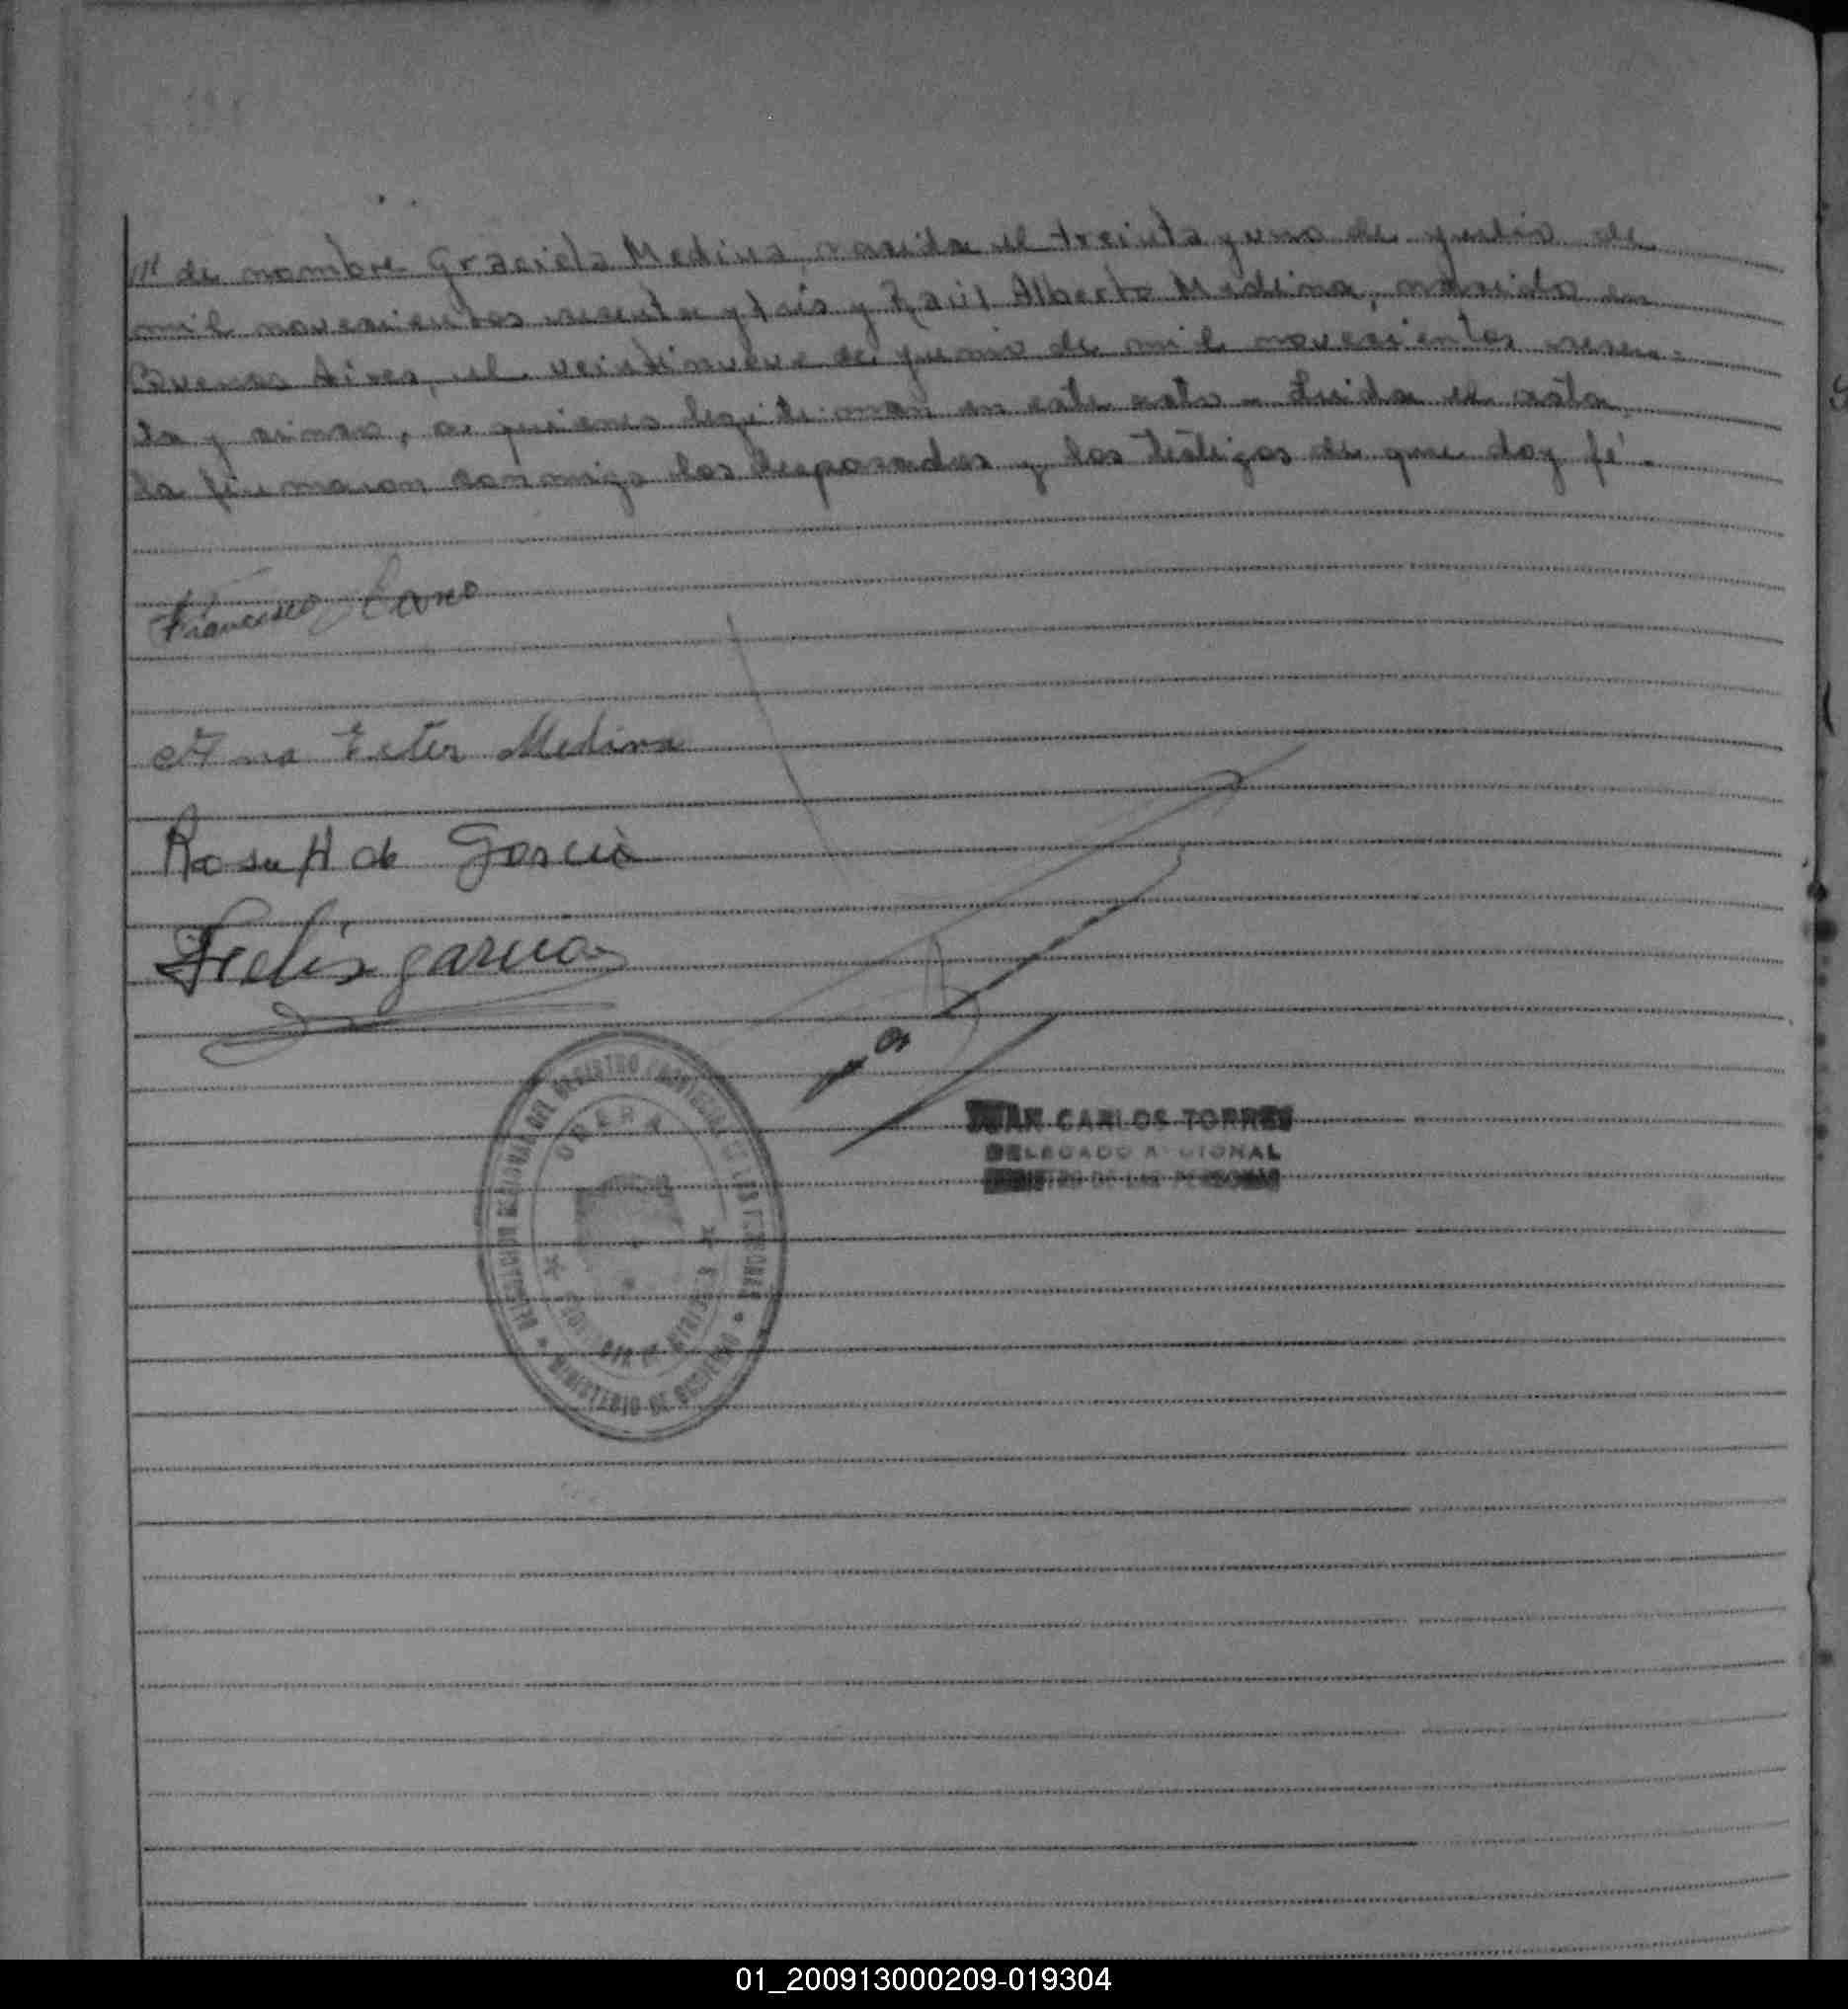 /// de nombre Graciela Medina, nacida el treinta y uno de julio de
mil novecientos sesenta y tres y Raúl Alberto Medina, nacido en
Buenos Aires, el veintinueve de junio de mil novecientos sesen-
ta y cinco, a quienes legitiman en este acto - Leida el acta
la firmaron conmigo los desposados y los testigos de que doy fé.-
Francisco
Ana Ester Medina
Rosa H de García
Felix garcia
DELEGACION REGIONAL DEL REGISTRO PROVINCIAL DE LAS PERSONAS
OBERA
MINISTERIO DE GOBIERNO
JUAN CARLOS TORRES
DELEGADO REGIONAL
REGISTRO DE LAS PERSONAS
01_200913000209-019304